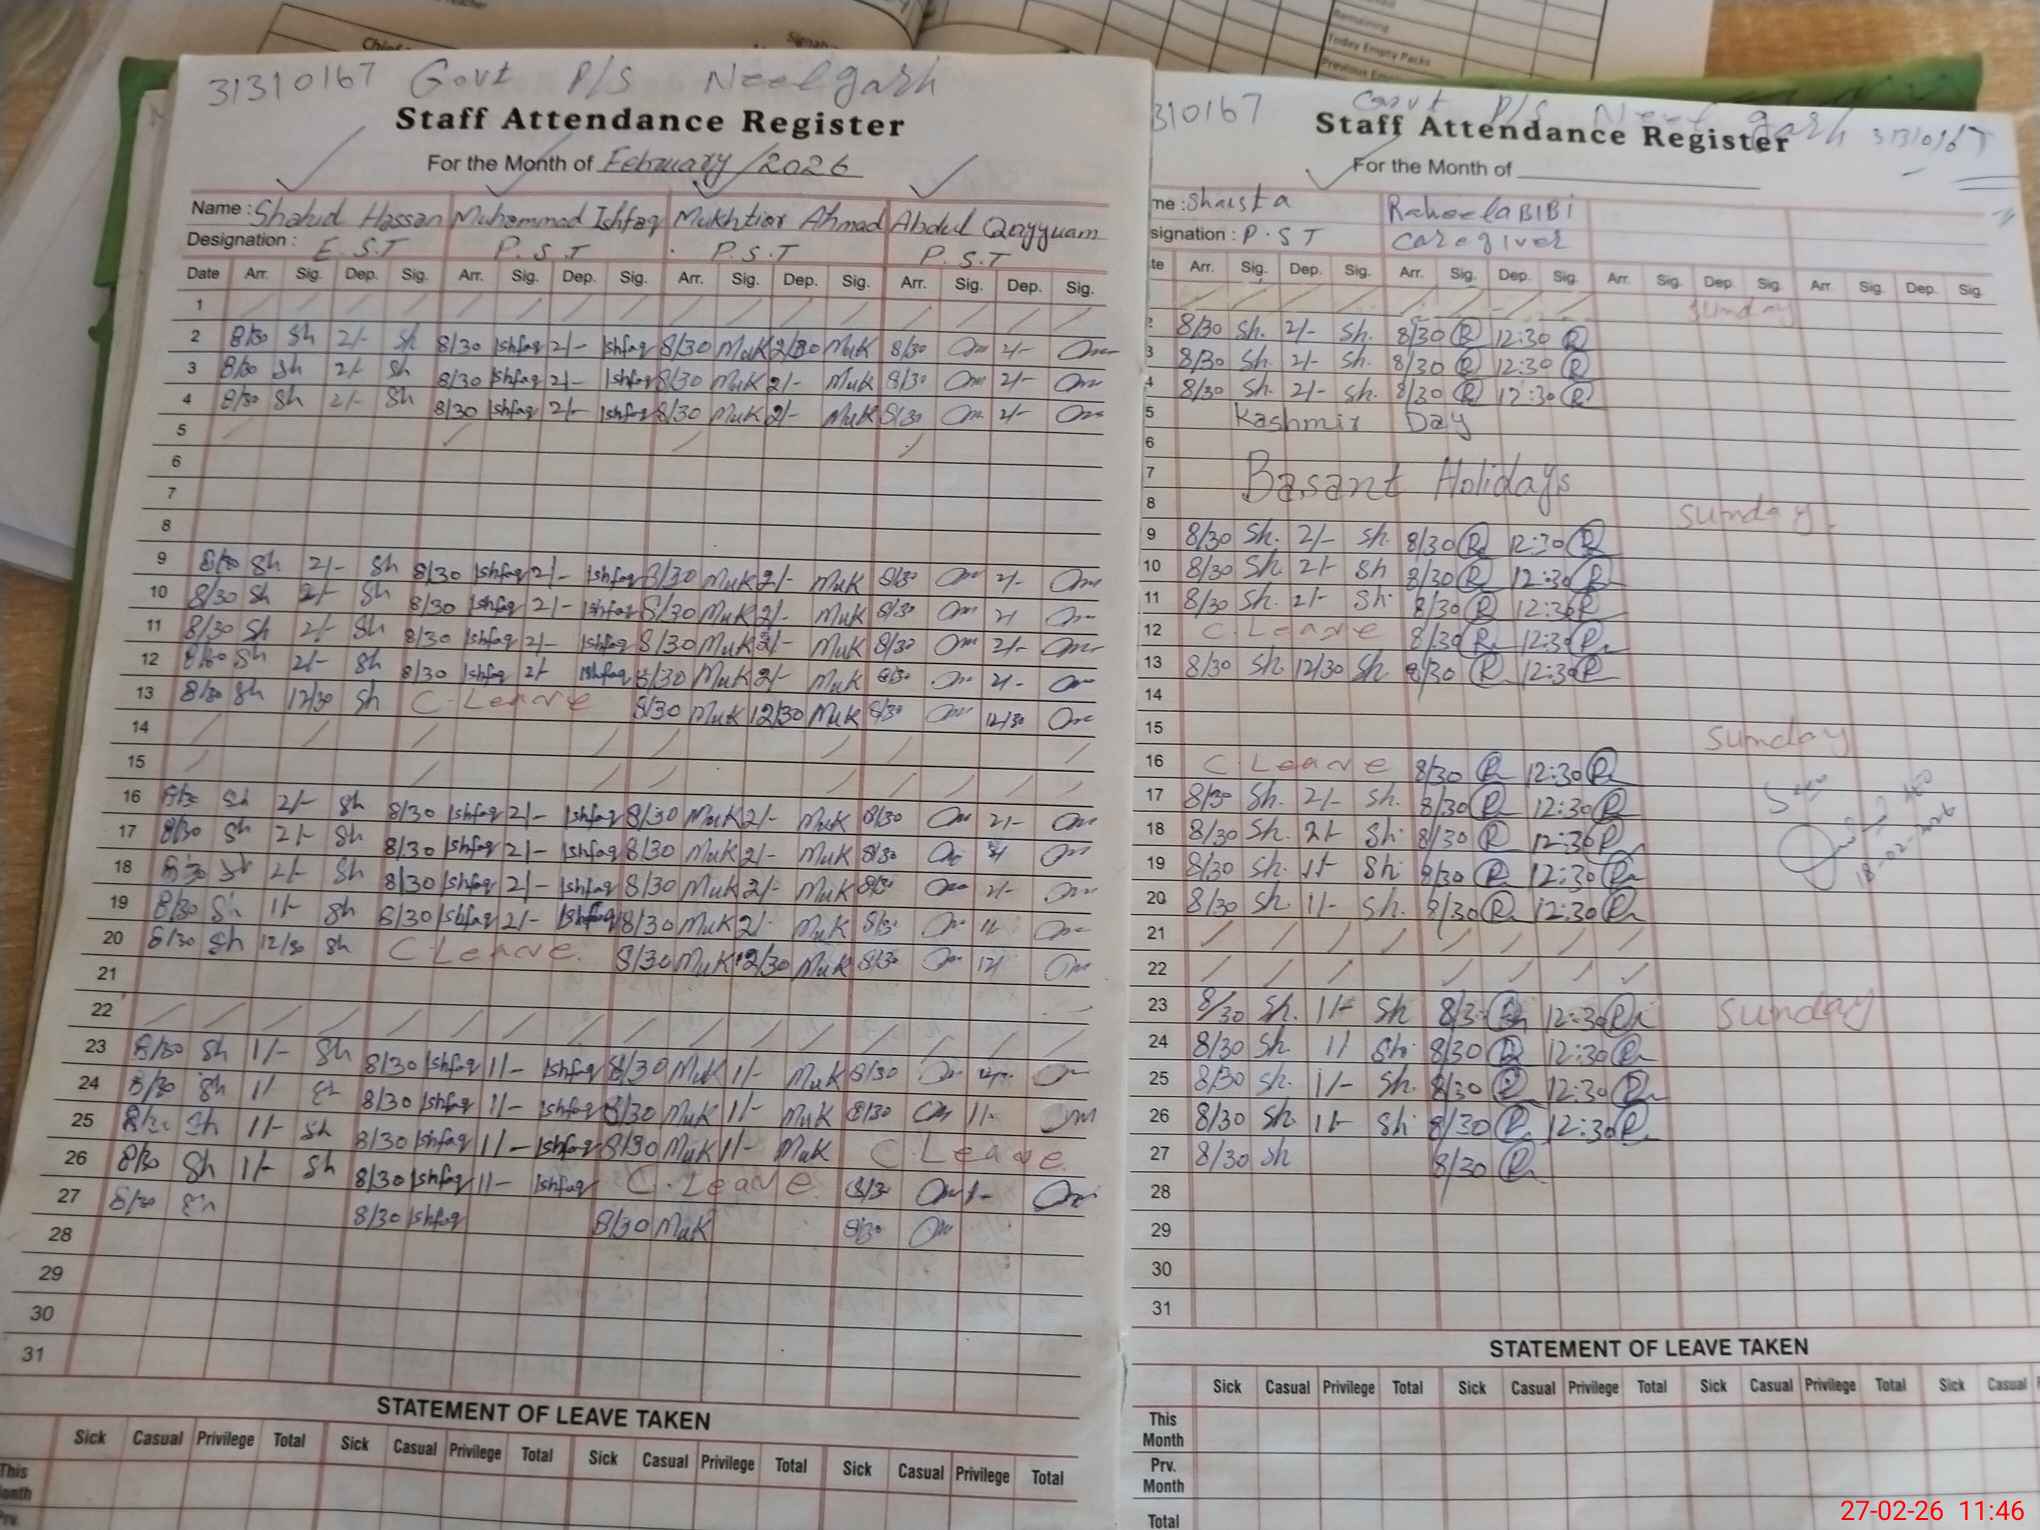 31310167 Govt P/S Neelgarh
Staff Attendance Register
For the Month of February/2026
Name: Shahid Hassan Muhammad Ishfaq Mukhtiar Ahmad Abdul Qayyuam
Designation: E.S.T P.S.T P.S.T P.S.T
Date Arr. Sig. Dep. Sig. Arr. Sig. Dep. Sig. Arr. Sig. Dep. Sig. Arr. Sig. Dep. Sig.
1
2 8/30 Sh 2/- Sh 8/30 Ishfaq 2/- Ishfaq 8/30 MuK 2/30 MuK 8/30 2/-
3 8/30 Sh 2/- Sh 8/30 Ishfaq 2/- Ishfaq 8/30 MuK 2/- MuK 8/30 2/-
4 8/30 Sh 2/- Sh 8/30 Ishfaq 2/- Ishfaq 8/30 MuK 2/- MuK 8/30 2/-
5
6
7
8
9 8/30 Sh 2/- Sh 8/30 Ishfaq 2/- Ishfaq 8/30 MuK 2/- MuK 8/30 2/-
10 8/30 Sh 2/- Sh 8/30 Ishfaq 2/- Ishfaq 8/30 MuK 2/- MuK 8/30 2/
11 8/30 Sh 2/- Sh 8/30 Ishfaq 2/- Ishfaq 8/30 MuK 2/- MuK 8/30 2/-
12 8/30 Sh 2/- Sh 8/30 Ishfaq 2/- Ishfaq 8/30 MuK 2/- MuK 8/30 2/-
13 8/30 Sh 12/30 Sh C. Leave 8/30 MuK 12/30 MuK 8/30 12/30
14
15
16 8/30 Sh 2/- Sh 8/30 Ishfaq 2/- Ishfaq 8/30 MuK 2/- MuK 8/30 2/-
17 8/30 Sh 2/- Sh 8/30 Ishfaq 2/- Ishfaq 8/30 MuK 2/- MuK 8/30
18 8/30 Sh 2/- Sh 8/30 Ishfaq 2/- Ishfaq 8/30 MuK 2/- MuK 8/30 2/-
19 8/30 Sh 1/- Sh 8/30 Ishfaq 2/- Ishfaq 8/30 MuK 2/- MuK 8/30
20 8/30 Sh 12/30 Sh C Leave. 8/30 MuK 12/30 MuK 8/30
21
22
23 8/30 Sh 1/- Sh 8/30 Ishfaq 1/- Ishfaq 8/30 MuK 1/- MuK 8/30
24 8/30 Sh 1/ Sh 8/30 Ishfaq 1/- Ishfaq 8/30 MuK 1/- MuK 8/30 1/-
25 8/30 Sh 1/- Sh 8/30 Ishfaq 1/- Ishfaq 8/30 MuK 1/- MuK C. Leave.
26 8/30 Sh 1/- Sh 8/30 Ishfaq 1/- Ishfaq C. Leave. 8/30 1/-
27 8/30 Sh 8/30 Ishfaq 8/30 MuK 8/30
28
29
30
31
STATEMENT OF LEAVE TAKEN
Sick Casual Privilege Total Sick Casual Privilege Total Sick Casual Privilege Total Sick Casual Privilege Total
This
onth
Prv.
310167 Govt P/S Neel garh 31310167
Staff Attendance Register
For the Month of
me: Shaista Raheela BIBI
signation: P.S T Caregiver
te Arr. Sig. Dep. Sig. Arr. Sig. Dep. Sig. Arr. Sig. Dep. Sig. Arr. Sig. Dep. Sig.
Sunday
2 8/30 Sh. 2/- Sh. 8/30 R 12:30 R
3 8/30 Sh. 2/- Sh. 8/30 R 12:30 R
4 8/30 Sh. 2/- Sh. 8/30 R 12:30 R
5 Kashmir Day
6
7 Basant Holidays
8 Sunday.
9 8/30 Sh. 2/- Sh. 8/30 R 12:30 R
10 8/30 Sh 2/- Sh 8/30 R 12:30 R
11 8/30 Sh. 2/- Sh. 8/30 R 12:30 R
12 C. Leave 8/30 R 12:30 R
13 8/30 Sh. 12/30 Sh. 8/30 R 12:30 R
14
15 Sunday
16 C. Leave 8/30 R 12:30 R
17 8/30 Sh. 2/- Sh. 8/30 R 12:30 R
18 8/30 Sh. 2/- Sh. 8/30 R 12:30 R
19 8/30 Sh. 1/- Sh. 8/30 R 12:30 R
20 8/30 Sh. 1/- Sh. 8/30 R 12:30 R
AEO
18-02-2026
21
22
23 8/30 Sh. 1/- Sh 8/30 R 12:30 R Sunday
24 8/30 Sh 1/ Sh. 8/30 R 12:30 R
25 8/30 Sh. 1/- Sh. 8/30 R 12:30 R
26 8/30 Sh 1/- Sh. 8/30 R 12:30 R
27 8/30 Sh 8/30 R
28
29
30
31
STATEMENT OF LEAVE TAKEN
Sick Casual Privilege Total Sick Casual Privilege Total Sick Casual Privilege Total Sick Casual
This
Month
Prv.
Month
Total
Remaining
Today Empty Packs
27-02-26 11:46